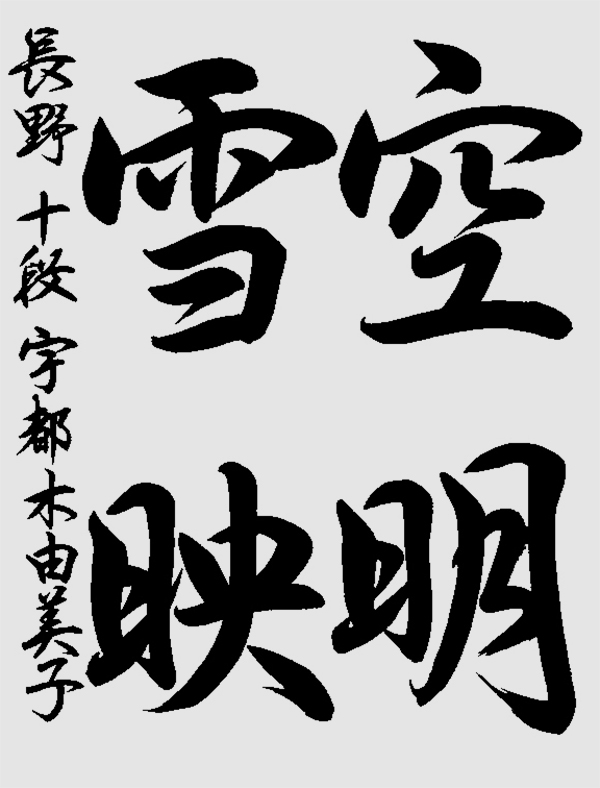 空明
雪映
長野 十段 宇都木由美子